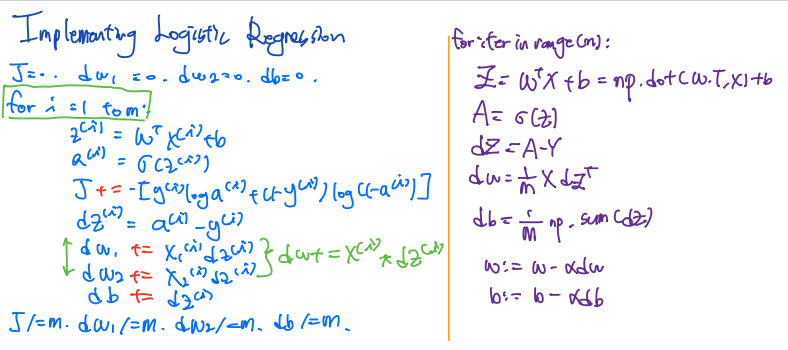 Implementing Logistic Regression
J=0. dw₁ =0. dw₂=0. db=0.
for i =1 to m:
z⁽ⁱ⁾ = wᵀx⁽ⁱ⁾+b
a⁽ⁱ⁾ = σ(z⁽ⁱ⁾)
J += -[y⁽ⁱ⁾log a⁽ⁱ⁾+(1-y⁽ⁱ⁾)log(1-a⁽ⁱ⁾)]
dz⁽ⁱ⁾ = a⁽ⁱ⁾-y⁽ⁱ⁾
dw₁ += x₁⁽ⁱ⁾dz⁽ⁱ⁾
dw₂ += x₂⁽ⁱ⁾dz⁽ⁱ⁾
} dw+=x⁽ⁱ⁾*dz⁽ⁱ⁾
db += dz⁽ⁱ⁾
J/=m. dw₁/=m. dw₂/=m. db/=m.
for iter in range(m):
Z= wᵀX+b = np.dot(w.T,X)+b
A= σ(z)
dZ=A-Y
dw=1/m X dZᵀ
db=1/m np.sum(dz)
w:= w-αdw
b:= b-αdb